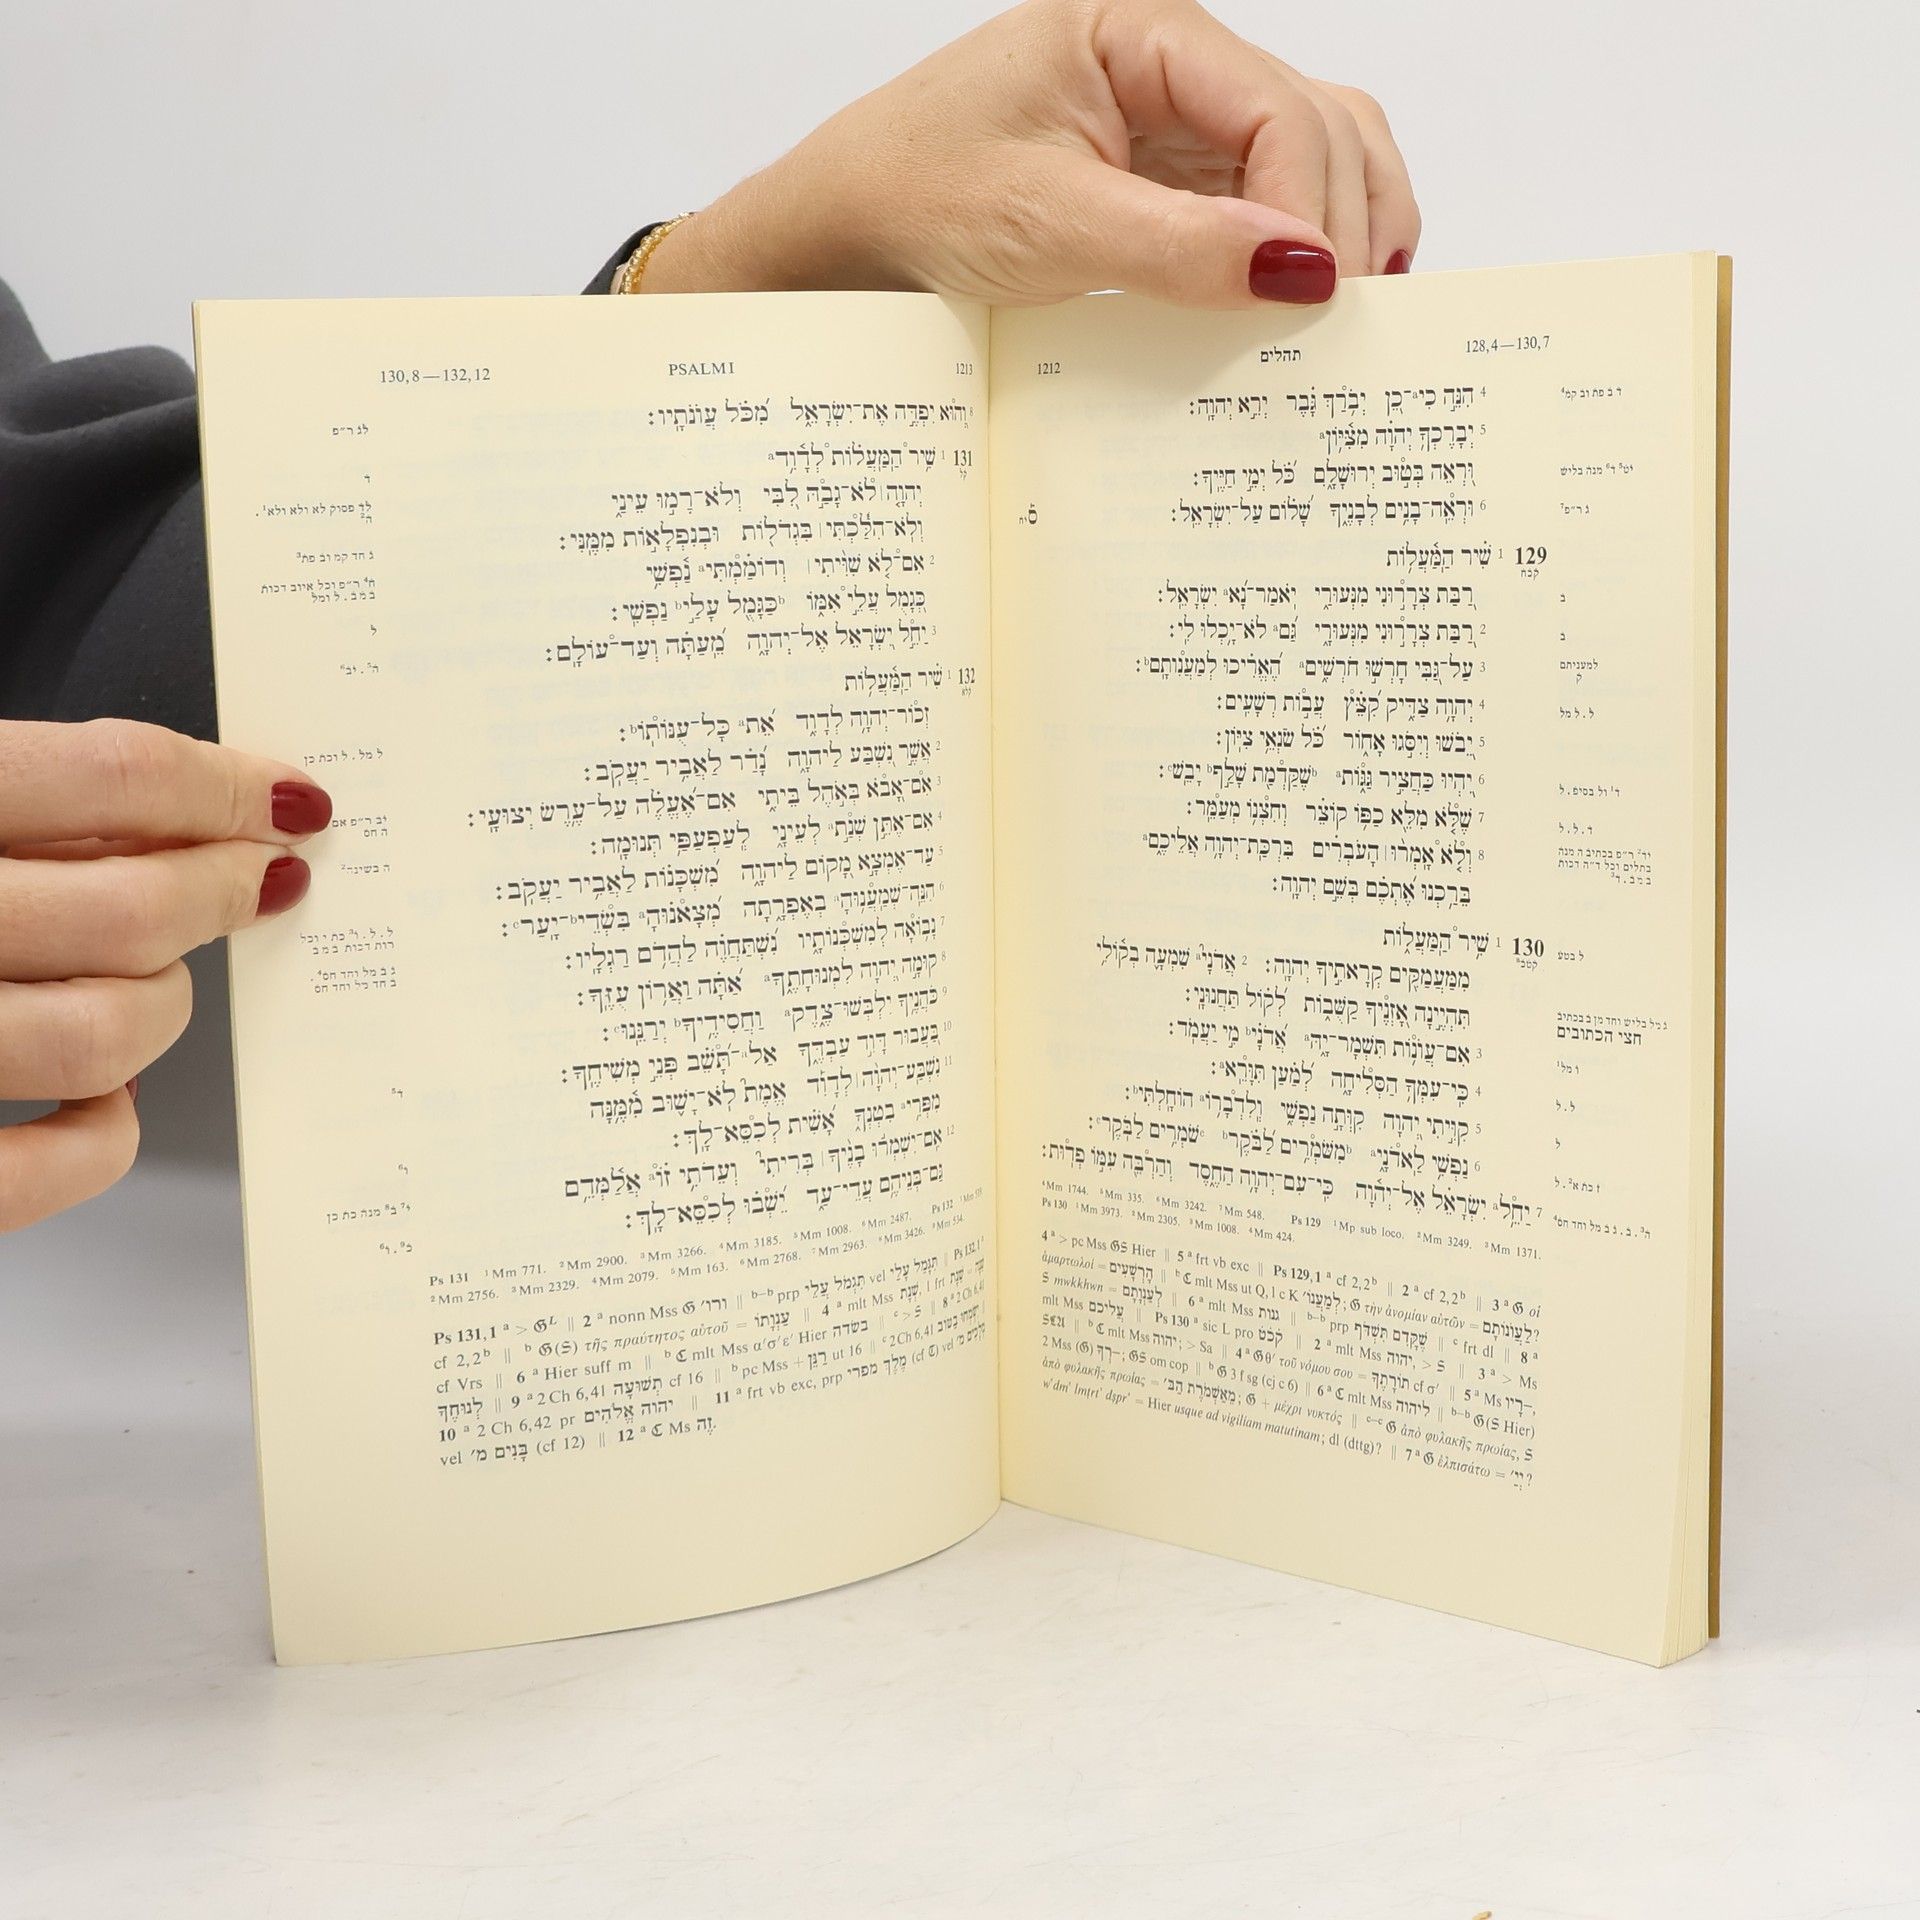 128,4—130,7
תהלים
1212
4 הִנֵּה כִי־ᵃכֵן יְבֹרַךְ גָּבֶר יְרֵא יְהוָה׃
5 יְבָרֶכְךָ יְהוָה מִצִּיּוֹןᵃ
וּרְאֵה בְּטוּב יְרוּשָׁלִָם כֹּל יְמֵי חַיֶּיךָ׃
6 וּרְאֵה־בָנִים לְבָנֶיךָ שָׁלוֹם עַל־יִשְׂרָאֵל׃
129 1 שִׁיר הַמַּעֲלוֹת
קכח
רַבַּת צְרָרוּנִי מִנְּעוּרַי יֹאמַר־נָאᵃ יִשְׂרָאֵל׃
2 רַבַּת צְרָרוּנִי מִנְּעוּרָי גַּםᵃ לֹא־יָכְלוּ לִי׃
3 עַל־גַּבִּי חָרְשׁוּ חֹרְשִׁיםᵃ הֶאֱרִיכוּ לְמַעֲנוֹתָםᵇ׃
4 יְהוָה צַדִּיק קִצֵּץ עֲבוֹת רְשָׁעִים׃
5 יֵבֹשׁוּ וְיִסֹּגוּ אָחוֹר כֹּל שֹׂנְאֵי צִיּוֹן׃
6 יִהְיוּ כַּחֲצִיר גַּגּוֹתᵃ ᵇשֶׁקַּדְמַת שָׁלַףᵇ יָבֵשׁᶜ׃
7 שֶׁלֹּא מִלֵּא כַפּוֹ קוֹצֵר וְחִצְנוֹ מְעַמֵּר׃
8 וְלֹא אָמְרוּ׀ הָעֹבְרִים בִּרְכַּת־יְהוָה אֲלֵיכֶםᵃ
בֵּרַכְנוּ אֶתְכֶם בְּשֵׁם יְהוָה׃
130 1 שִׁיר הַמַּעֲלוֹת
מִמַּעֲמַקִּים קְרָאתִיךָ יְהוָה׃ 2 אֲדֹנָיᵃ שִׁמְעָה בְקוֹלִי
תִּהְיֶינָה אָזְנֶיךָ קַשֻּׁבוֹת לְקוֹל תַּחֲנוּנָי׃
3 אִם־עֲוֹנוֹת תִּשְׁמָר־יָהּᵃ אֲדֹנָיᵇ מִי יַעֲמֹד׃
4 כִּי־עִמְּךָ הַסְּלִיחָה לְמַעַן תִּוָּרֵאᵃ׃
5 קִוִּיתִי יְהוָה קִוְּתָה נַפְשִׁי וְלִדְבָרוֹᵃ הוֹחָלְתִּיᵇ׃
6 נַפְשִׁי לַאדֹנָיᵃ ᵇמִשֹּׁמְרִים לַבֹּקֶרᵇ ᶜשֹׁמְרִים לַבֹּקֶרᶜ׃
7 יַחֵלᵃ יִשְׂרָאֵל אֶל־יְהוָה כִּי־עִם־יְהוָה הַחֶסֶד וְהַרְבֵּה עִמּוֹ פְדוּת׃
חצי הכתובים
⁴Mm 1744. ⁵Mm 335. ⁶Mm 3242. ⁷Mm 548. Ps 129 ¹Mp sub loco. ²Mm 3249. ³Mm 1371.
Ps 130 ¹Mm 3973. ²Mm 2305. ³Mm 1008. ⁴Mm 424.
4 ᵃ > pc Mss 𝔊𝔖 Hier ‖ 5 ᵃ frt vb exc ‖ Ps 129,1 ᵃ cf 2,2ᵇ ‖ 2 ᵃ cf 2,2ᵇ ‖ 3 ᵃ 𝔊 οἱ
ἁμαρτωλοί = הָרְשָׁעִים ‖ ᵇ ℭ mlt Mss ut Q, l c K לְמַעֲנוֹ׳; 𝔊 τὴν ἀνομίαν αὐτῶν = לַעֲוֹנוֹתָם?
𝔖 mwkkhwn = לְעַנְוָתָם ‖ 6 ᵃ mlt Mss גגות ‖ ᵇ⁻ᵇ prp שֶׁקָּדִם תִּשְׁדֹּף ‖ ᶜ frt dl ‖ 8 ᵃ
mlt Mss עֲלֵיכם ‖ Ps 130 ᵃ sic L pro קכט ‖ 2 ᵃ mlt Mss יהוה, > 𝔖 ‖ 3 ᵃ > Ms
ἀπὸ φυλακῆς πρωίας = מֵאַשְׁמֹרֶת הַבּ׳; 𝔊 + μέχρι νυκτός ‖ ᶜ⁻ᶜ 𝔊 ἀπὸ φυλακῆς πρωίας, 𝔖
w'dm' lmṭrt' dṣpr' = Hier usque ad vigiliam matutinam; dl (dttg)? ‖ 7 ᵃ 𝔊 ἐλπισάτω = יְיַ׳?
130,8—132,12
PSALMI
1213
8 וְהוּא יִפְדֶּה אֶת־יִשְׂרָאֵל מִכֹּל עֲוֹנֹתָיו׃
131 1 שִׁיר הַמַּעֲלוֹת לְדָוִדᵃ
יְהוָה׀ לֹא־גָבַהּ לִבִּי וְלֹא־רָמוּ עֵינַי
וְלֹא־הִלַּכְתִּי׀ בִּגְדֹלוֹת וּבְנִפְלָאוֹת מִמֶּנִּי׃
2 אִם־לֹא שִׁוִּיתִי׀ וְדוֹמַמְתִּיᵃ נַפְשִׁי
כְּגָמֻל עֲלֵי אִמּוֹ ᵇכַּגָּמֻל עָלַיᵇ נַפְשִׁי׃
3 יַחֵל יִשְׂרָאֵל אֶל־יְהוָה מֵעַתָּה וְעַד־עוֹלָם׃
132 1 שִׁיר הַמַּעֲלוֹת
קלא
זְכוֹר־יְהוָה לְדָוִד אֵתᵃ כָּל־עֻנּוֹתוֹᵇ׃
2 אֲשֶׁר נִשְׁבַּע לַיהוָה נָדַר לַאֲבִיר יַעֲקֹב׃
3 אִם־אָבֹא בְּאֹהֶל בֵּיתִי אִם־אֶעֱלֶה עַל־עֶרֶשׂ יְצוּעָי׃
4 אִם־אֶתֵּן שְׁנַתᵃ לְעֵינָי לְעַפְעַפַּי תְּנוּמָה׃
5 עַד־אֶמְצָא מָקוֹם לַיהוָה מִשְׁכָּנוֹת לַאֲבִיר יַעֲקֹב׃
6 הִנֵּה־שְׁמַעֲנוּהָᵃ בְאֶפְרָתָה מְצָאנוּהָᵃ בִּשְׂדֵיᵇ־יָעַרᶜ׃
7 נָבוֹאָה לְמִשְׁכְּנוֹתָיו נִשְׁתַּחֲוֶה לַהֲדֹם רַגְלָיו׃
8 קוּמָה יְהוָה לִמְנוּחָתֶךָᵃ אַתָּה וַאֲרוֹן עֻזֶּךָ׃
9 כֹּהֲנֶיךָ יִלְבְּשׁוּ־צֶדֶקᵃ וַחֲסִידֶיךָᵇ יְרַנֵּנוּᶜ׃
10 בַּעֲבוּר דָּוִד עַבְדֶּךָ אַלᵃ־תָּשֵׁב פְּנֵי מְשִׁיחֶךָ׃
11 נִשְׁבַּע־יְהוָה׀ לְדָוִד אֱמֶת לֹא־יָשׁוּב מִמֶּנָּה
מִפְּרִיᵃ בִטְנְךָ אָשִׁית לְכִסֵּא־לָךְ׃
12 אִם־יִשְׁמְרוּ בָנֶיךָ׀ בְּרִיתִי וְעֵדֹתִי זוֹᵃ אֲלַמְּדֵם
גַּם־בְּנֵיהֶם עֲדֵי־עַד יֵשְׁבוּ לְכִסֵּא־לָךְ׃
Ps 131 ¹Mm 771. ²Mm 2900. ³Mm 3266. ⁴Mm 3185. ⁵Mm 1008. ⁶Mm 2487. Ps 132 ¹Mm 539.
²Mm 2756. ³Mm 2329. ⁴Mm 2079. ⁵Mm 163. ⁶Mm 2768. ⁷Mm 2963. ⁸Mm 3426. ⁹Mm 534.
Ps 131,1 ᵃ > 𝔊ᴸ ‖ 2 ᵃ nonn Mss 𝔊 ורו׳ ‖ ᵇ⁻ᵇ prp תִּגְמֹל עָלַי vel תִּגָּמֵל עָלַי ‖ Ps 132,1 ᵃ
cf 2,2ᵇ ‖ ᵇ 𝔊(𝔖) τῆς πραύτητος αὐτοῦ = עַנְוָתוֹ ‖ 4 ᵃ mlt Mss שְׁנָת, l frt שֵׁנָה = שֵׁנָת
cf Vrs ‖ 6 ᵃ Hier suff m ‖ ᵇ ℭ mlt Mss α'σ'ε' Hier בשדה ‖ ᶜ > 𝔖 ‖ 8 ᵃ 2 Ch 6,41
לְנוּחֶךָ ‖ 9 ᵃ 2 Ch 6,41 תְּשׁוּעָה cf 16 ‖ ᵇ pc Mss + רַנֵּן ut 16 ‖ ᶜ 2 Ch 6,41 יִשְׂמְחוּ בַטּוֹב ‖
10 ᵃ 2 Ch 6,42 pr יהוה אֱלֹהִים ‖ 11 ᵃ frt vb exc, prp מֶלֶךְ מפרי (cf ℭ) vel מְלָכִים מ׳
vel בָּנִים מ׳ (cf 12) ‖ 12 ᵃ ℭ Ms זֶה.